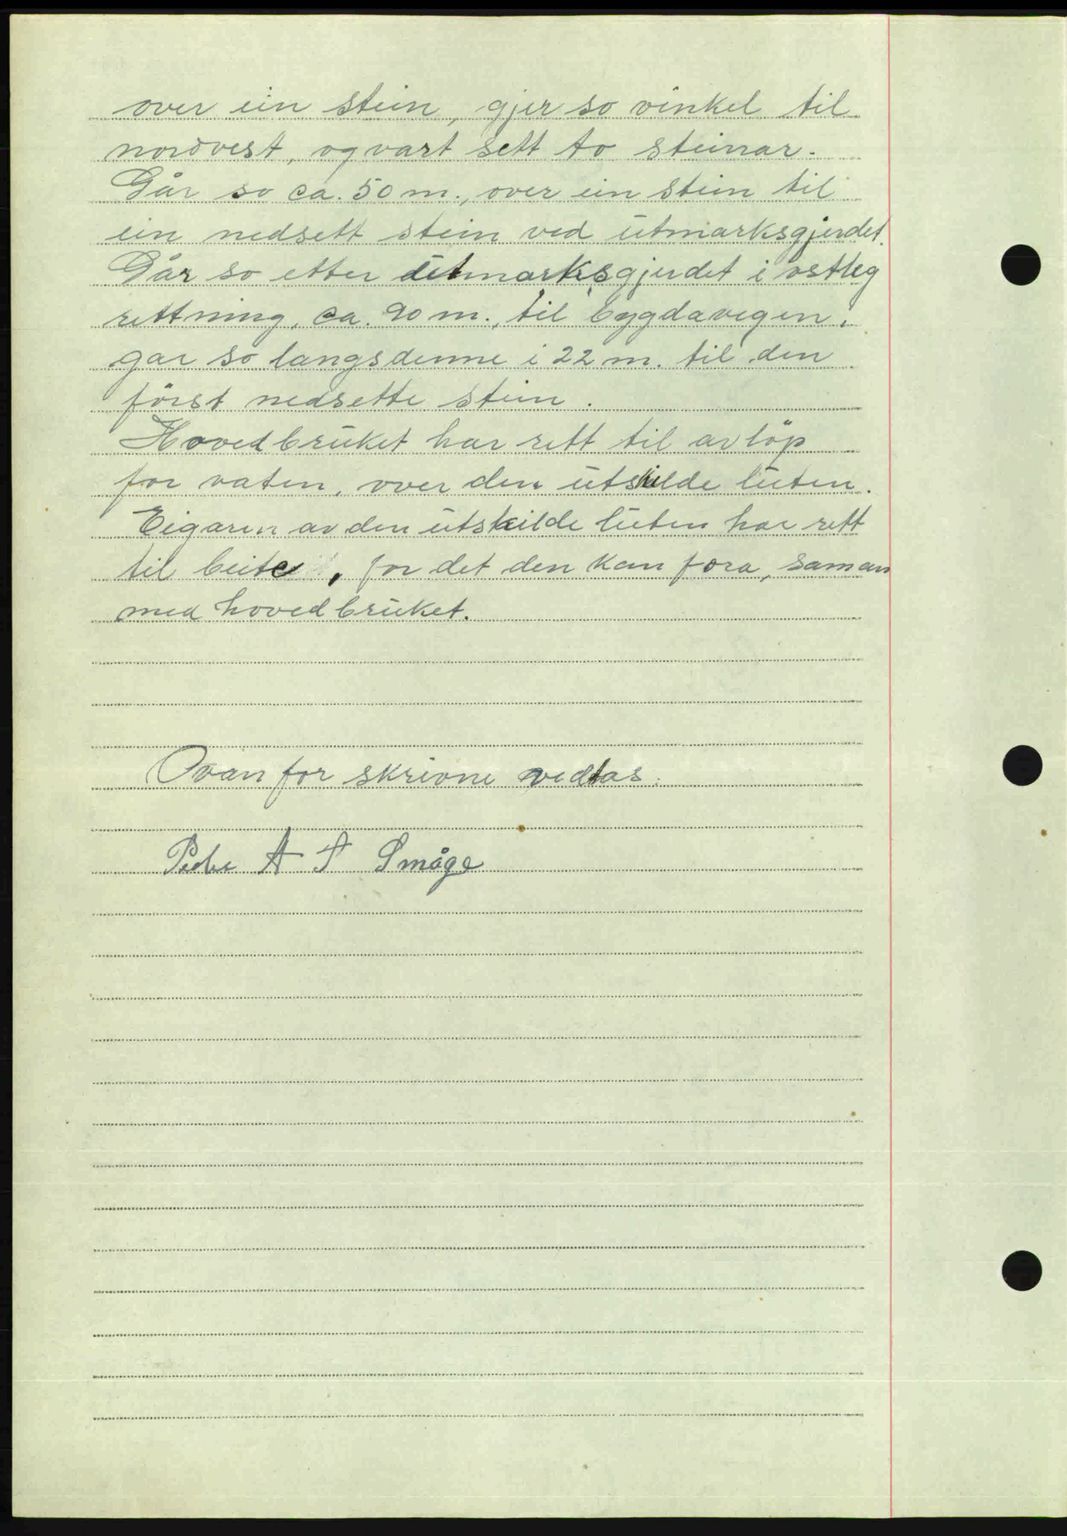 over ein stein, gjer so vinkel til
nordvest, og vart sett to steinar.
Går so ca. 50 m., over ein stein til
ein nedsett stein ved utmarksgjerdet.
Går so etter utmarksgjerdet i östleg
rettning, ca. 90 m., til bygdavegen,
gar so langs denne i 22 m. til den
först nedsette stein.
Hovedbruket har rett til avlöp
for vaten, over den utskilde luten.
Eigaren av den utskilde luten har rett
til beite, for det den kan fora, saman
med hovedbruket.
Ovanfor skrivne vedtas.
Peder A S Småge